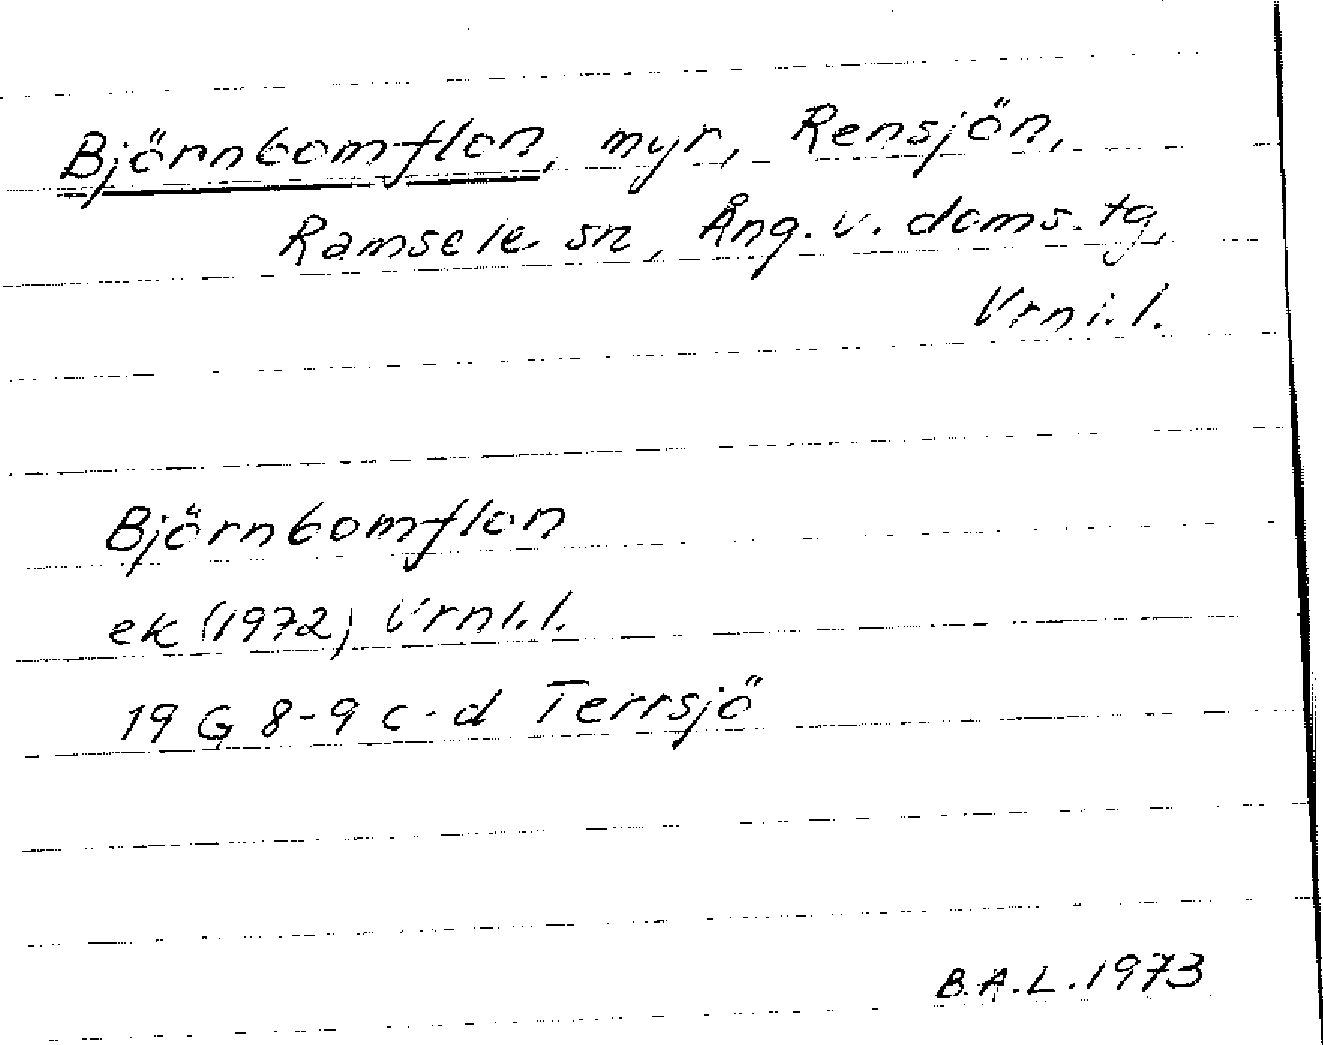 Björnbomflon, myr, Rensjön,
Ramsele sn, Ång. v. doms. tg,
Vrni. l.
Björnbomflon
ek (1972) Vrni. l.
19 G 8-9 c-d Terrsjö
B.A.L. 1973